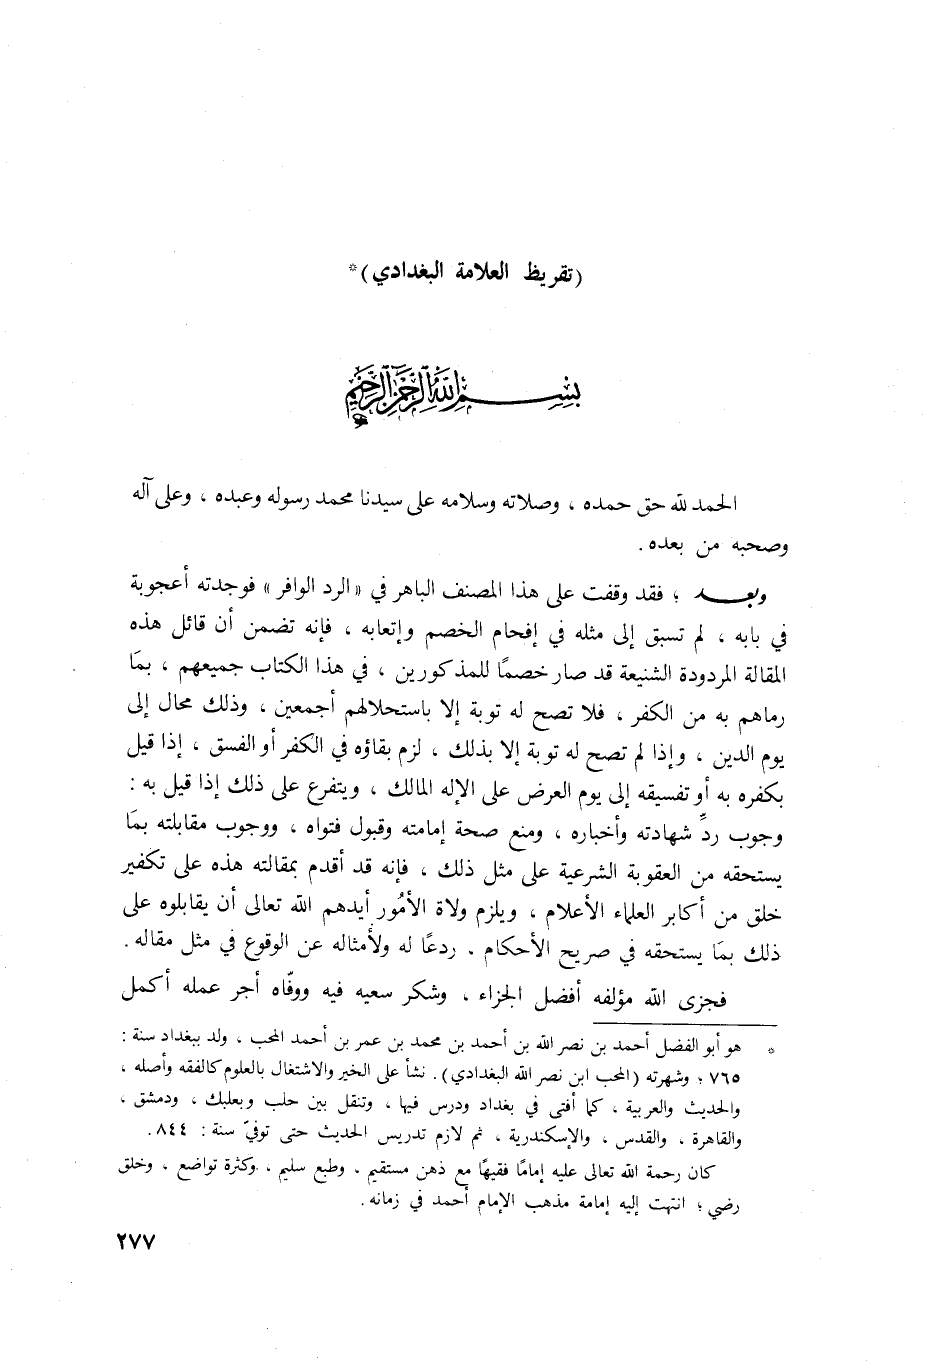 (تقريظ العلامة البغدادي)*
بسم الله الرحمن الرحيم
الحمد لله حق حمده ، وصلاته وسلامه على سيدنا محمد رسوله وعبده ، وعلى آله
وصحبه من بعده .
وبعـــد ؛ فقد وقفت على هذا المصنف الباهر في «الرد الوافر» فوجدته أعجوبة
في بابه ، لم تسبق إلى مثله في إفحام الخصم وإتعابه ، فإنه تضمن أن قائل هذه
المقالة المردودة الشنيعة قد صار خصمًا للمذكورين ، في هذا الكتاب جميعهم ، بمَا
رماهم به من الكفر ، فلا تصح له توبة إلا باستحلالهم أجمعين ، وذلك محال إلى
يوم الدين ، وإذا لم تصح له توبة إلا بذلك ، لزم بقاؤه في الكفر أو الفسق ، إذا قيل
بكفره به أو تفسيقه إلى يوم العرض على الإله المالك ، ويتفرع على ذلك إذا قيل به :
وجوب ردِّ شهادته وأخباره ، ومنع صحة إمامته وقبول فتواه ، ووجوب مقابلته بمَا
يستحقه من العقوبة الشرعية على مثل ذلك ، فإنه قد أقدم بمقالته هذه على تكفير
خلق من أكابر العلماء الأعلام ، ويلزم ولاة الأمُور أيدهم الله تعالى أن يقابلوه على
ذلك بمَا يستحقه في صريح الأحكام . ردعًا له ولأمثاله عن الوقوع في مثل مقاله .
فجزى الله مؤلفه أفضل الجزاء ، وشكر سعيه فيه ووفّاه أجر عمله أكمل
* هو أبو الفضل أحمد بن نصر الله بن أحمد بن محمد بن عمر بن أحمد المحب ، ولد ببغداد سنة :
٧٦٥ ؛ وشهرته (المحب ابن نصر الله البغدادي) . نشأ على الخير والاشتغال بالعلوم كالفقه وأصله ،
والحديث والعربية ، كما أفتى في بغداد ودرس فيها ، وتنقل بين حلب وبعلبك ، ودمشق ،
والقاهرة ، والقدس ، والإسكندرية ، ثم لازم تدريس الحديث حتى توفيّ سنة : ٨٤٤ .
كان رحمة الله تعالى عليه إمامًا فقيهًا مع ذهن مستقيم ، وطبع سليم ، وكثرة تواضع ، وخلق
رضي ؛ انتهت إليه إمامة مذهب الإمام أحمد في زمانه .
٢٧٧